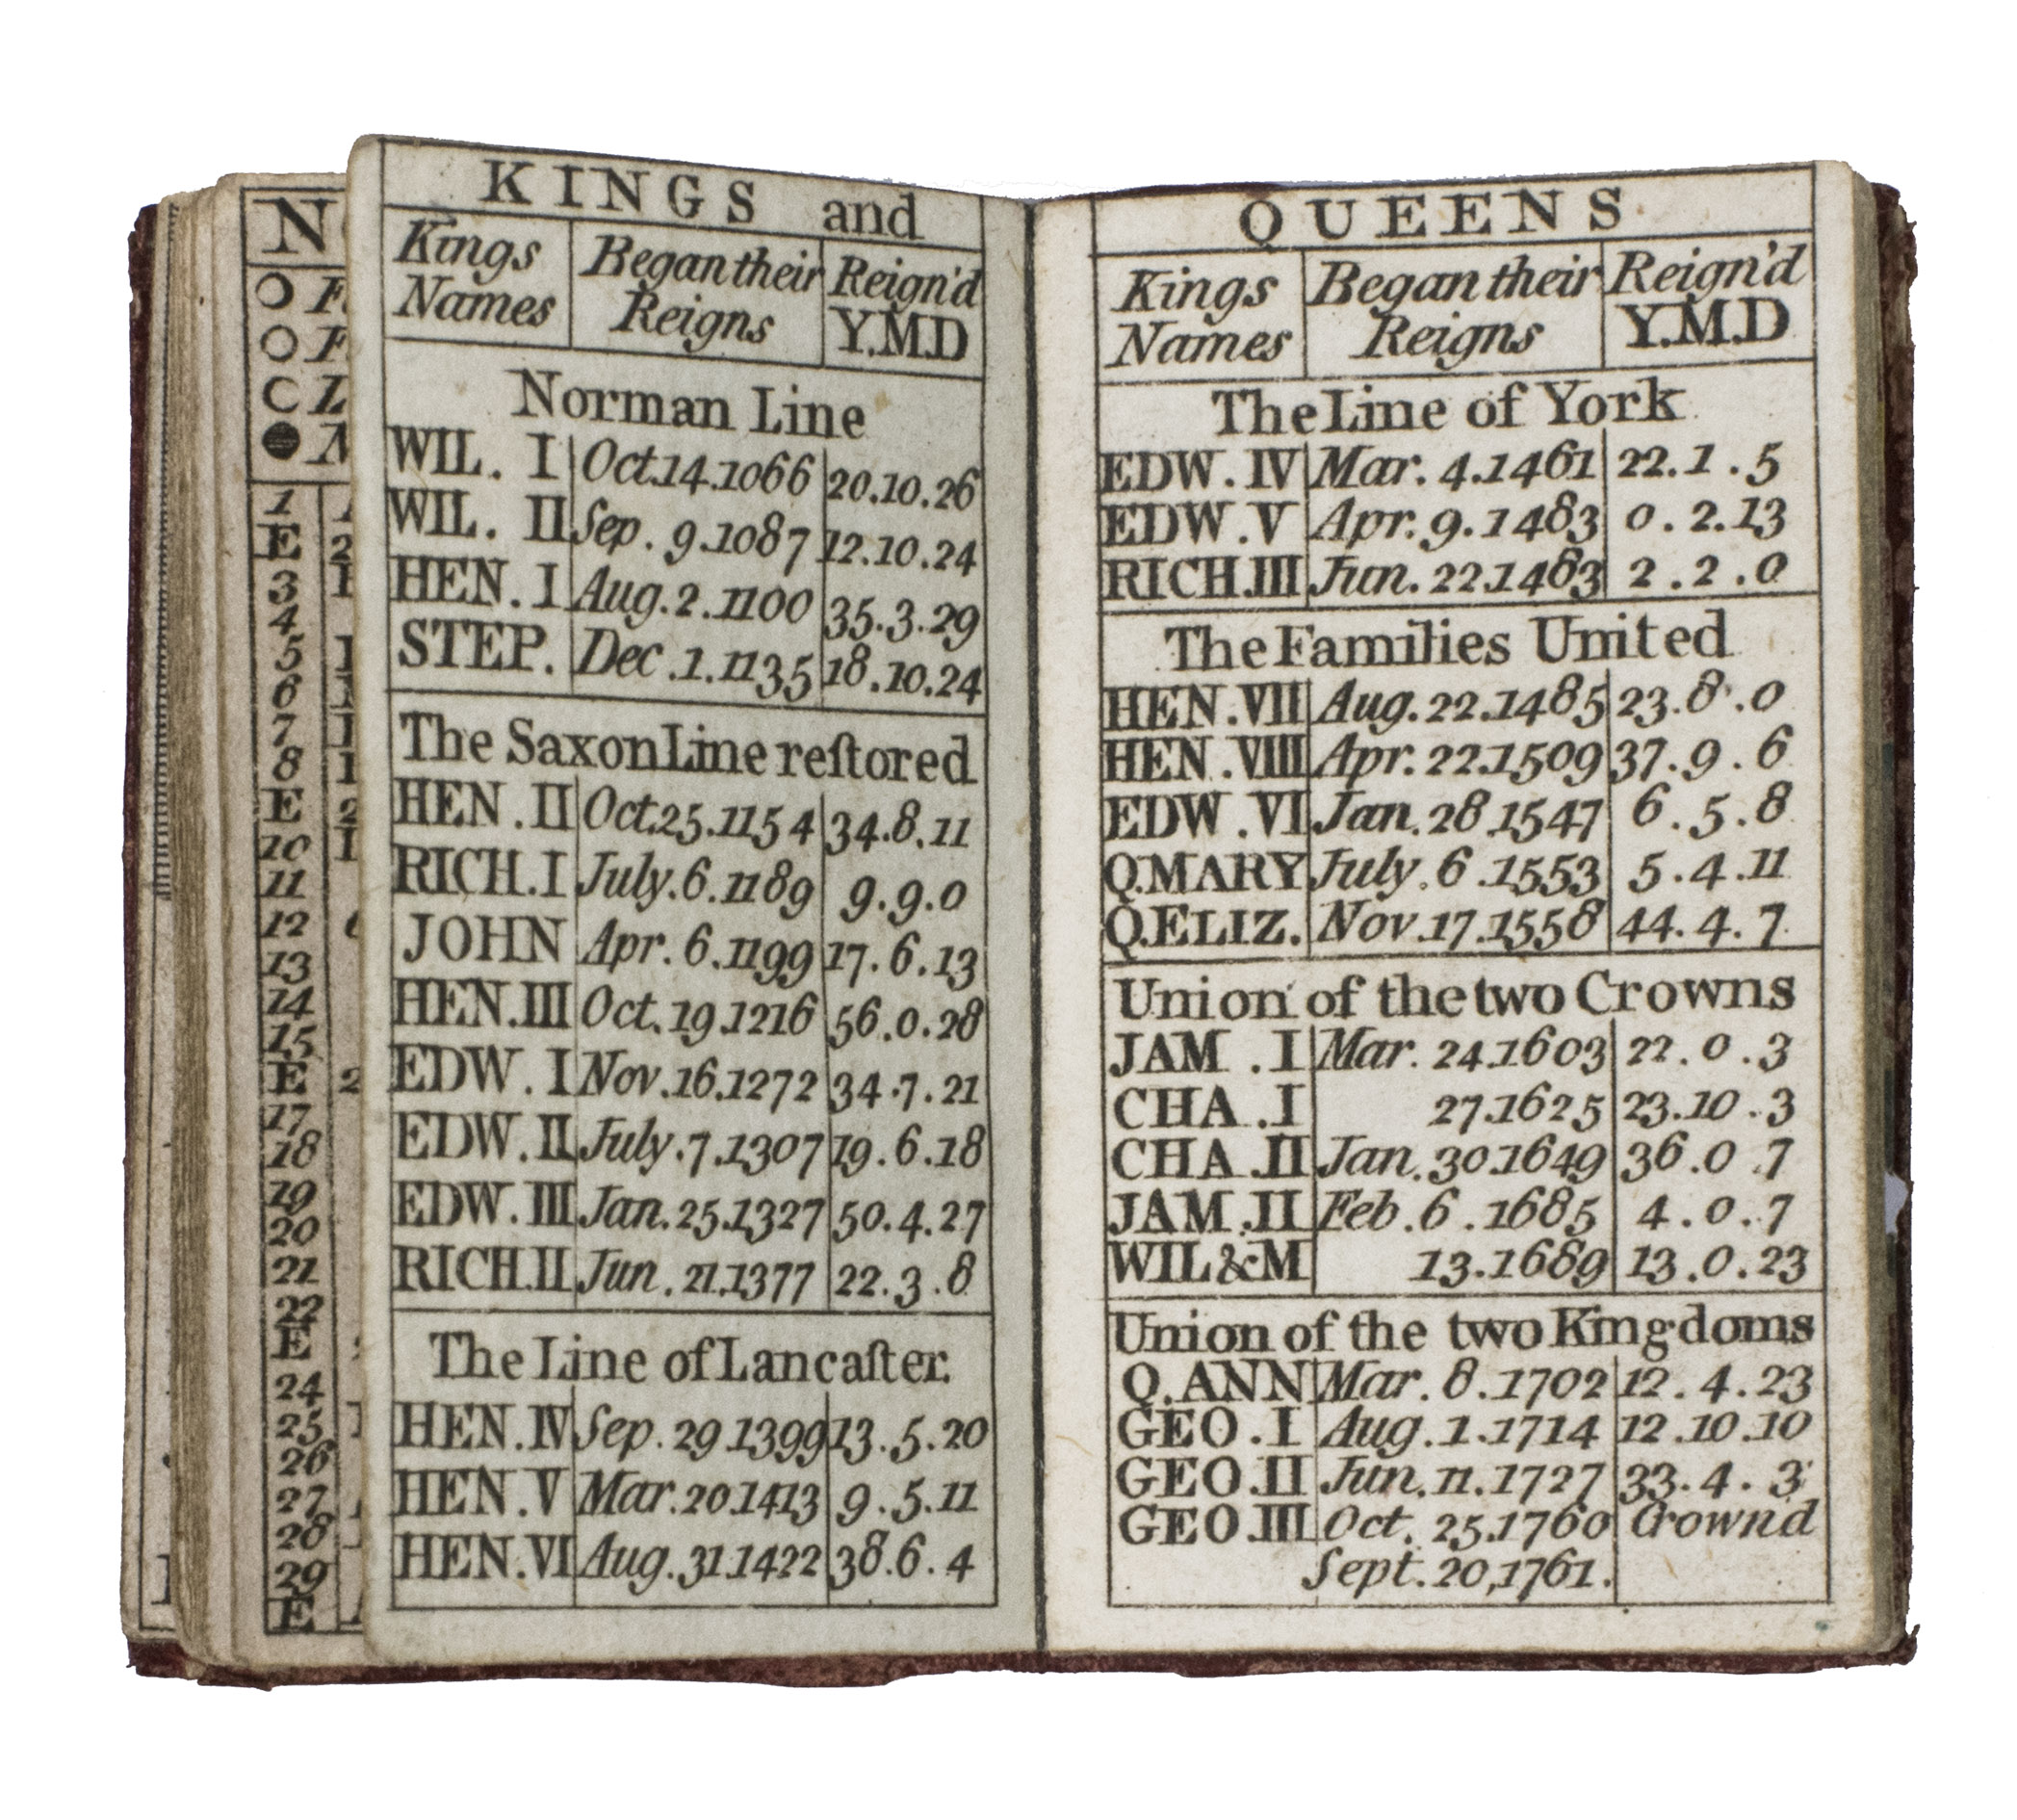 KINGS and
Kings Names | Began their Reigns | Reign'd Y.M.D
Norman Line
WIL. I Oct.14.1066 20.10.26
WIL. II Sep. 9.1087 12.10.24
HEN. I Aug.2.1100 35.3.29
STEP. Dec.1.1135 18.10.24
The Saxon Line reſtored
HEN.II Oct.25.1154 34.8.11
RICH.I July.6.1189 9.9.0
JOHN Apr.6.1199 17.6.13
HEN.III Oct.19.1216 56.0.28
EDW.I Nov.16.1272 34.7.21
EDW.II July.7.1307 19.6.18
EDW.III Jan.25.1327 50.4.27
RICH.II Jun.21.1377 22.3.8
The Line of Lancaſter.
HEN.IV Sep.29.1399 13.5.20
HEN.V Mar.20.1413 9.5.11
HEN.VI Aug.31.1422 38.6.4
QUEENS
Kings Names | Began their Reigns | Reign'd Y.M.D
The Line of York
EDW.IV Mar.4.1461 22.1.5
EDW.V Apr.9.1483 0.2.13
RICH.III Jun.22.1483 2.2.0
The Families United
HEN.VII Aug.22.1485 23.8.0
HEN.VIII Apr.22.1509 37.9.6
EDW.VI Jan.28.1547 6.5.8
Q.MARY July.6.1553 5.4.11
Q.ELIZ. Nov.17.1558 44.4.7
Union of the two Crowns
JAM.I Mar.24.1603 22.0.3
CHA.I 27.1625 23.10.3
CHA.II Jan.30.1649 36.0.7
JAM.II Feb.6.1685 4.0.7
WIL&M 13.1689 13.0.23
Union of the two Kingdoms
Q.ANN Mar.8.1702 12.4.23
GEO.I Aug.1.1714 12.10.10
GEO.II Jun.11.1727 33.4.3
GEO.III Oct.25.1760 Crown'd
Sept.20,1761.
1
E
3
4
5
6
7
8
E
10
11
12
13
14
15
E
17
18
19
20
21
22
E
24
25
26
27
28
29
E